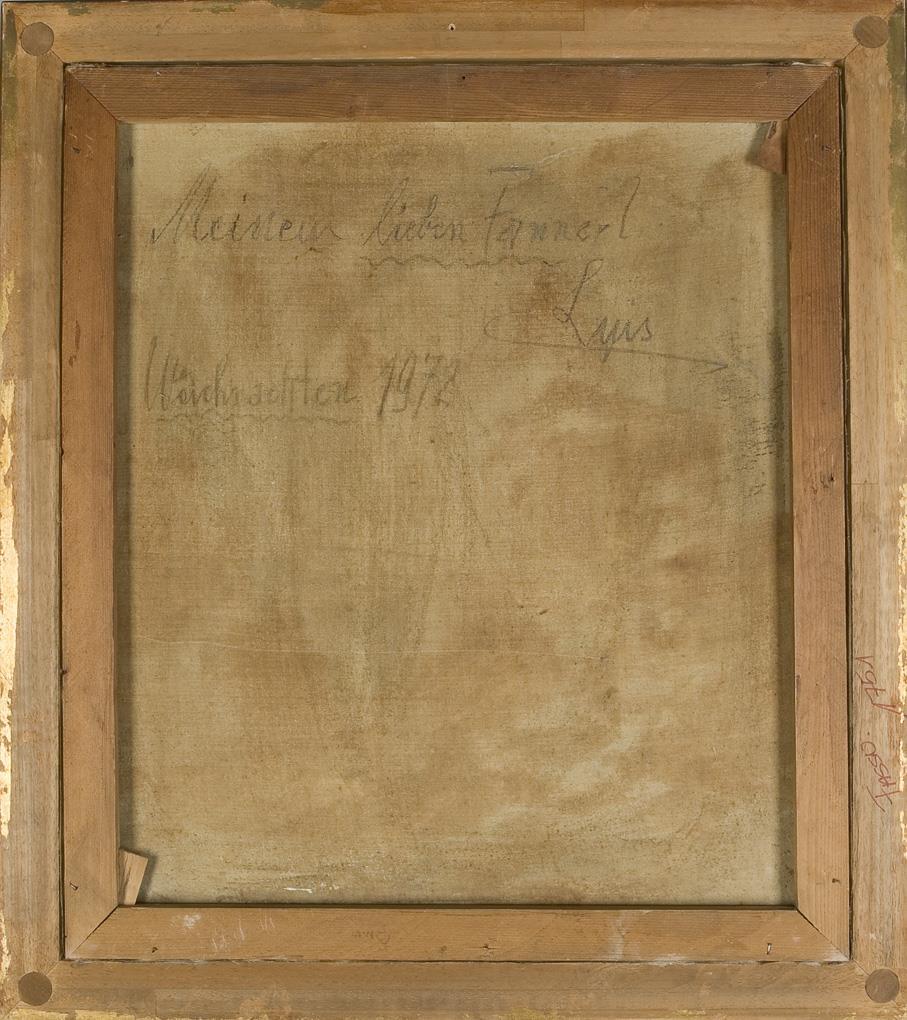 Meinem lieben Fannerl
Luis
Weihnachten 1972